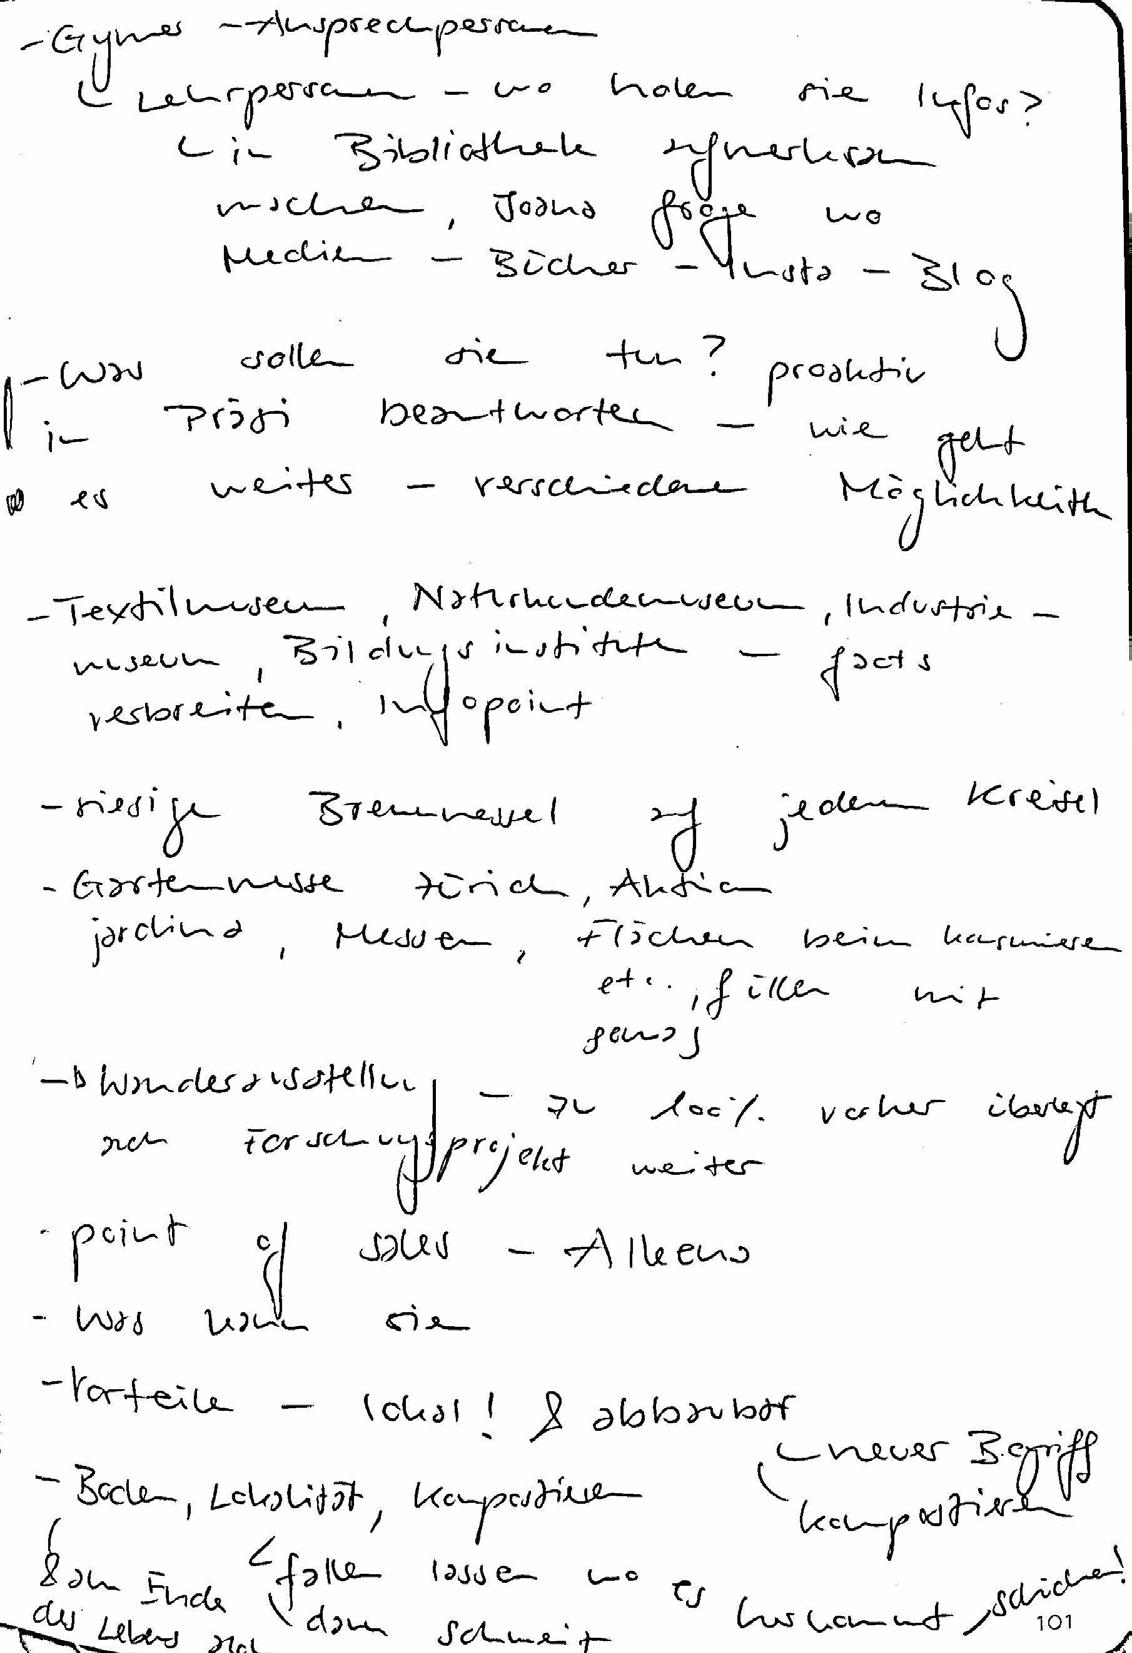 - Gymes - Ansprechpersonen
Lehrpersonen - wo holen sie Infos?
in Bibliothek aufmerksam
machen, Joana frage wo
Medien - Bücher - Insta - Blog
- Was sollen sie tun? proaktiv
in Präsi beantworten - wie geht
es weiter - verschiedene Möglichkeiten
- Textilmuseum, Naturkundemuseum, Industrie-
museum, Bildungsinstitute - facts
verbreiten, Infopoint
- riesige Brennnessel auf jedem Kreisel
- Gartenmesse Zürich, Aktion
jardina, Messen, Flächen beim
etc., füllen mit
- Wanderausstellung - zu 100% vorher überlegt
auch Forschungsprojekt weiter
- point of sales - Alleena
- Was kann sie
- Vorteile - lokal! & abbaubar
neuer Begriff
- Boden, Lokalität, Kompostieren
kompostieren
& am Ende fallen lassen wo es herkommt,
des Lebens auch dann
101